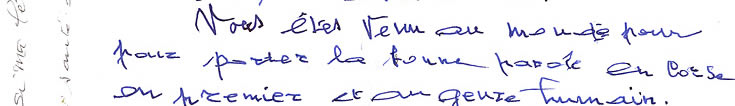 Vous êtes venu au monde pour
pour porter la bonne parole en Corse
en premier et au genre humain.